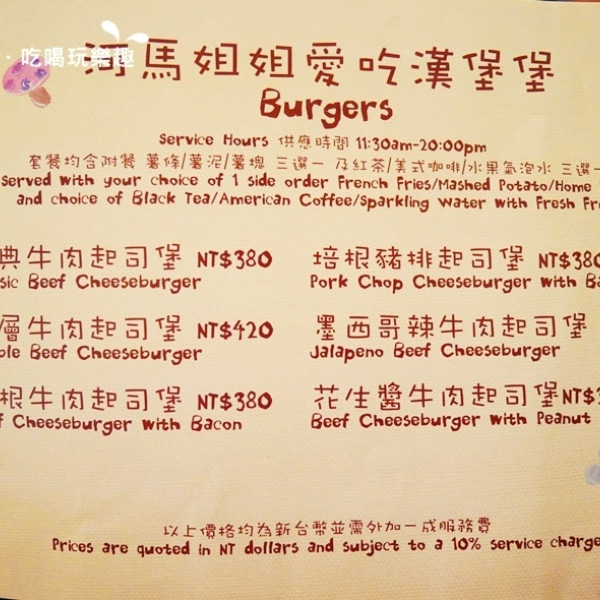 · 吃喝玩樂趣
河馬姐姐愛吃漢堡堡
Burgers
Service Hours 供應時間 11:30am-20:00pm
套餐均含附餐 薯條/薯泥/薯塊 三選一 及紅茶/美式咖啡/水果氣泡水 三選一
served with your choice of 1 side order French Fries/Mashed Potato/Home
and choice of Black Tea/American Coffee/Sparkling Water with Fresh
典牛肉起司堡 NT$380
Beef Cheeseburger
培根豬排起司堡 NT$380
Pork Chop Cheeseburger with
層牛肉起司堡 NT$420
Beef Cheeseburger
墨西哥辣牛肉起司堡
Jalapeno Beef Cheeseburger
根牛肉起司堡 NT$380
Cheeseburger with Bacon
花生醬牛肉起司堡 NT$
Beef Cheeseburger with Peanut
以上價格均為新台幣並需外加一成服務費
Prices are quoted in NT dollars and subject to a 10% service charge